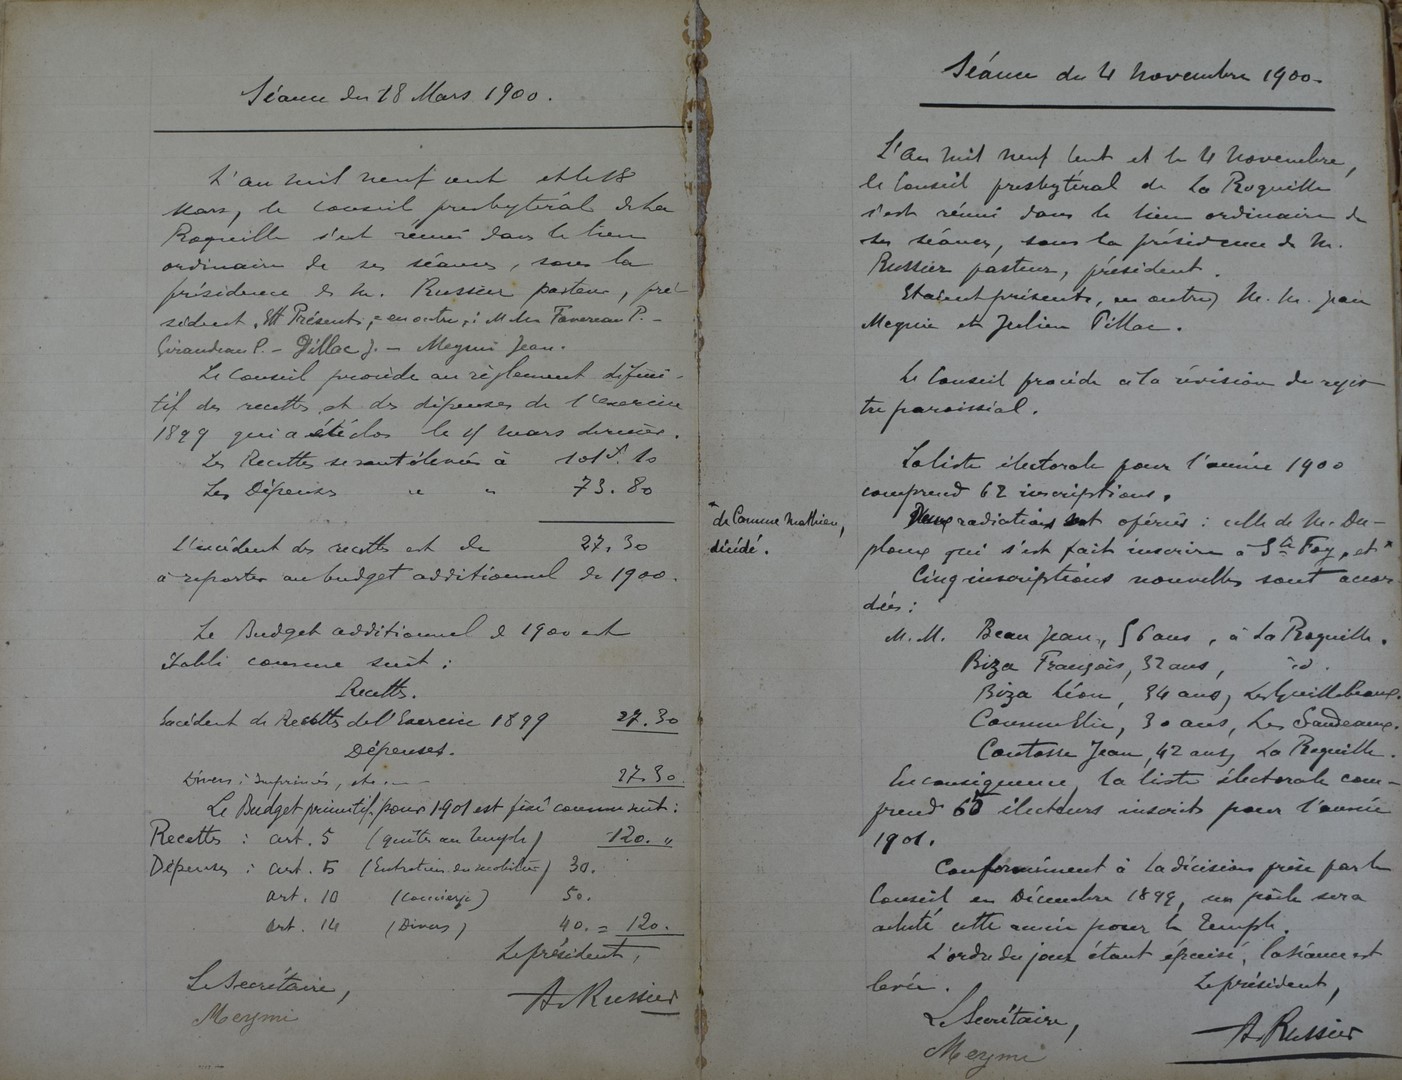 Séance du 18 Mars 1900.
L'an mil neuf cent et le 18
Mars, le conseil presbytéral de La
Roquille s'est réuni dans le lieu
ordinaire de ses séances, sous la
présidence de M. Russier pasteur, pré-
sident. Présents, en outre, : M. Mrs Favereau P. -
Girandeau P. - Pillac J. - Meymi Jean.
Le Conseil procède au règlement défini-
tif des recettes et des dépenses de l'exercice
1899 qui a été clos le 4 mars dernier.
Les Recettes se sont élevées à 101f.10
Les Dépenses " " 73.80
L'excédent des recettes est de 27.30
à reporter au budget additionnel de 1900.
Le Budget additionnel de 1900 est
établi comme suit :
Recettes.
Excédent de Recettes de l'Exercice 1899 27.30
Dépenses.
Divers : Imprimés, etc. 27.30
Le Budget primitif pour 1901 est fixé comme suit :
Recettes : art. 5 (quêtes au temple) 120. "
Dépenses : art. 5 (Entretien du mobilier) 30.
art. 10 (Concierge) 50.
art. 14 (Divers) 40. = 120.
Le président,
Le Secrétaire,
A. Russier
Meymi
Séance du 4 Novembre 1900.
L'an mil neuf cent et le 4 novembre,
le Conseil presbytéral de La Roquille
s'est réuni dans le lieu ordinaire de
ses séances, sous la présidence de M.
Russier pasteur, président.
Etaient présents, en outre, M. M. Jean
Meymi et Julien Pillac.
Le Conseil procède à la révision du regis-
tre paroissial.
La liste électorale pour l'année 1900
comprend 62 inscriptions.
Deux radiations sont opérées : celle de M. Du-
ploux qui s'est fait inscrire à Ste Foy, et *
* de Comme Mathieu,
décédé.
Cinq inscriptions nouvelles sont accor-
dées :
M. M. Beau Jean, 56 ans, à La Roquille.
Biza François, 32 ans, id.
Biza Léon, 34 ans, Les Guillebeaux.
Comme Elie, 30 ans, Les
Coutasse Jean, 42 ans, La Roquille.
En conséquence, la liste électorale com-
prend 65 électeurs inscrits pour l'année
1901.
Conformément à la décision prise par le
Conseil en Décembre 1899, un poêle sera
acheté cette année pour le Temple.
L'ordre du jour étant épuisé, la séance est
levée.
Le président,
Le Secrétaire,
A. Russier
Meymi